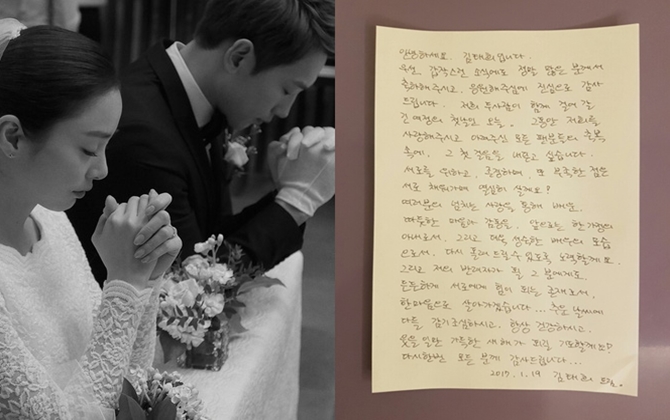 안녕하세요. 김태희입니다.
우선 갑작스런 소식에도 정말 많은 분께서
축하해주시고, 응원해주심에 진심으로 감사
드립니다. 저희 두사람이 함께 걸어 갈
긴 여정의 첫날인 오늘. 그동안 저희를
사랑해주시고 아껴주신 모든 팬분들의 축복
속에, 그 첫 걸음을 내딛고 싶습니다.
서로를 위하고, 존경하며, 또 부족한 점은
서로 채워가며 열심히 살게요?
여러분의 넘치는 사랑을 통해 배운,
따뜻한 마음과 감동을, 앞으로는 한 가정의
아내로서, 그리고 더욱 성숙한 배우의 모습
으로서, 다시 돌려 드릴 수 있도록 노력할께요.
그리고 저의 반려자가 될 그 분에게도,
든든하게 서로에게 힘이 되는 존재로서,
한마음으로 살아가겠습니다... 추운 날씨에
다들 감기조심하시고, 항상 건강하시고,
웃을 일만 가득한 새해가 되길 기도할께요?
다시한번 모든 분께 감사드립니다...
2017. 1. 19 김태희 드림.